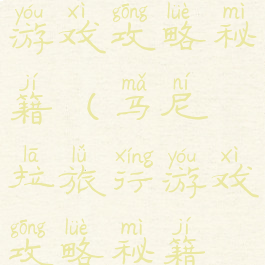 yóu xì gōng lüè mì
游戏攻略秘
jí mǎ ní
籍(马尼
lā lǚ xíng yóu xì
拉旅行游戏
gōng lüè mì jí
攻略秘籍